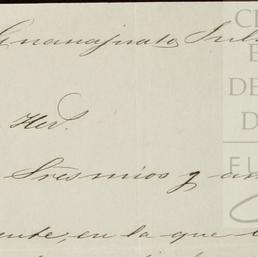 Guanajuato, Juli
Her.
Sres mios y am
ente, en la que
C
E
DE
D
F U